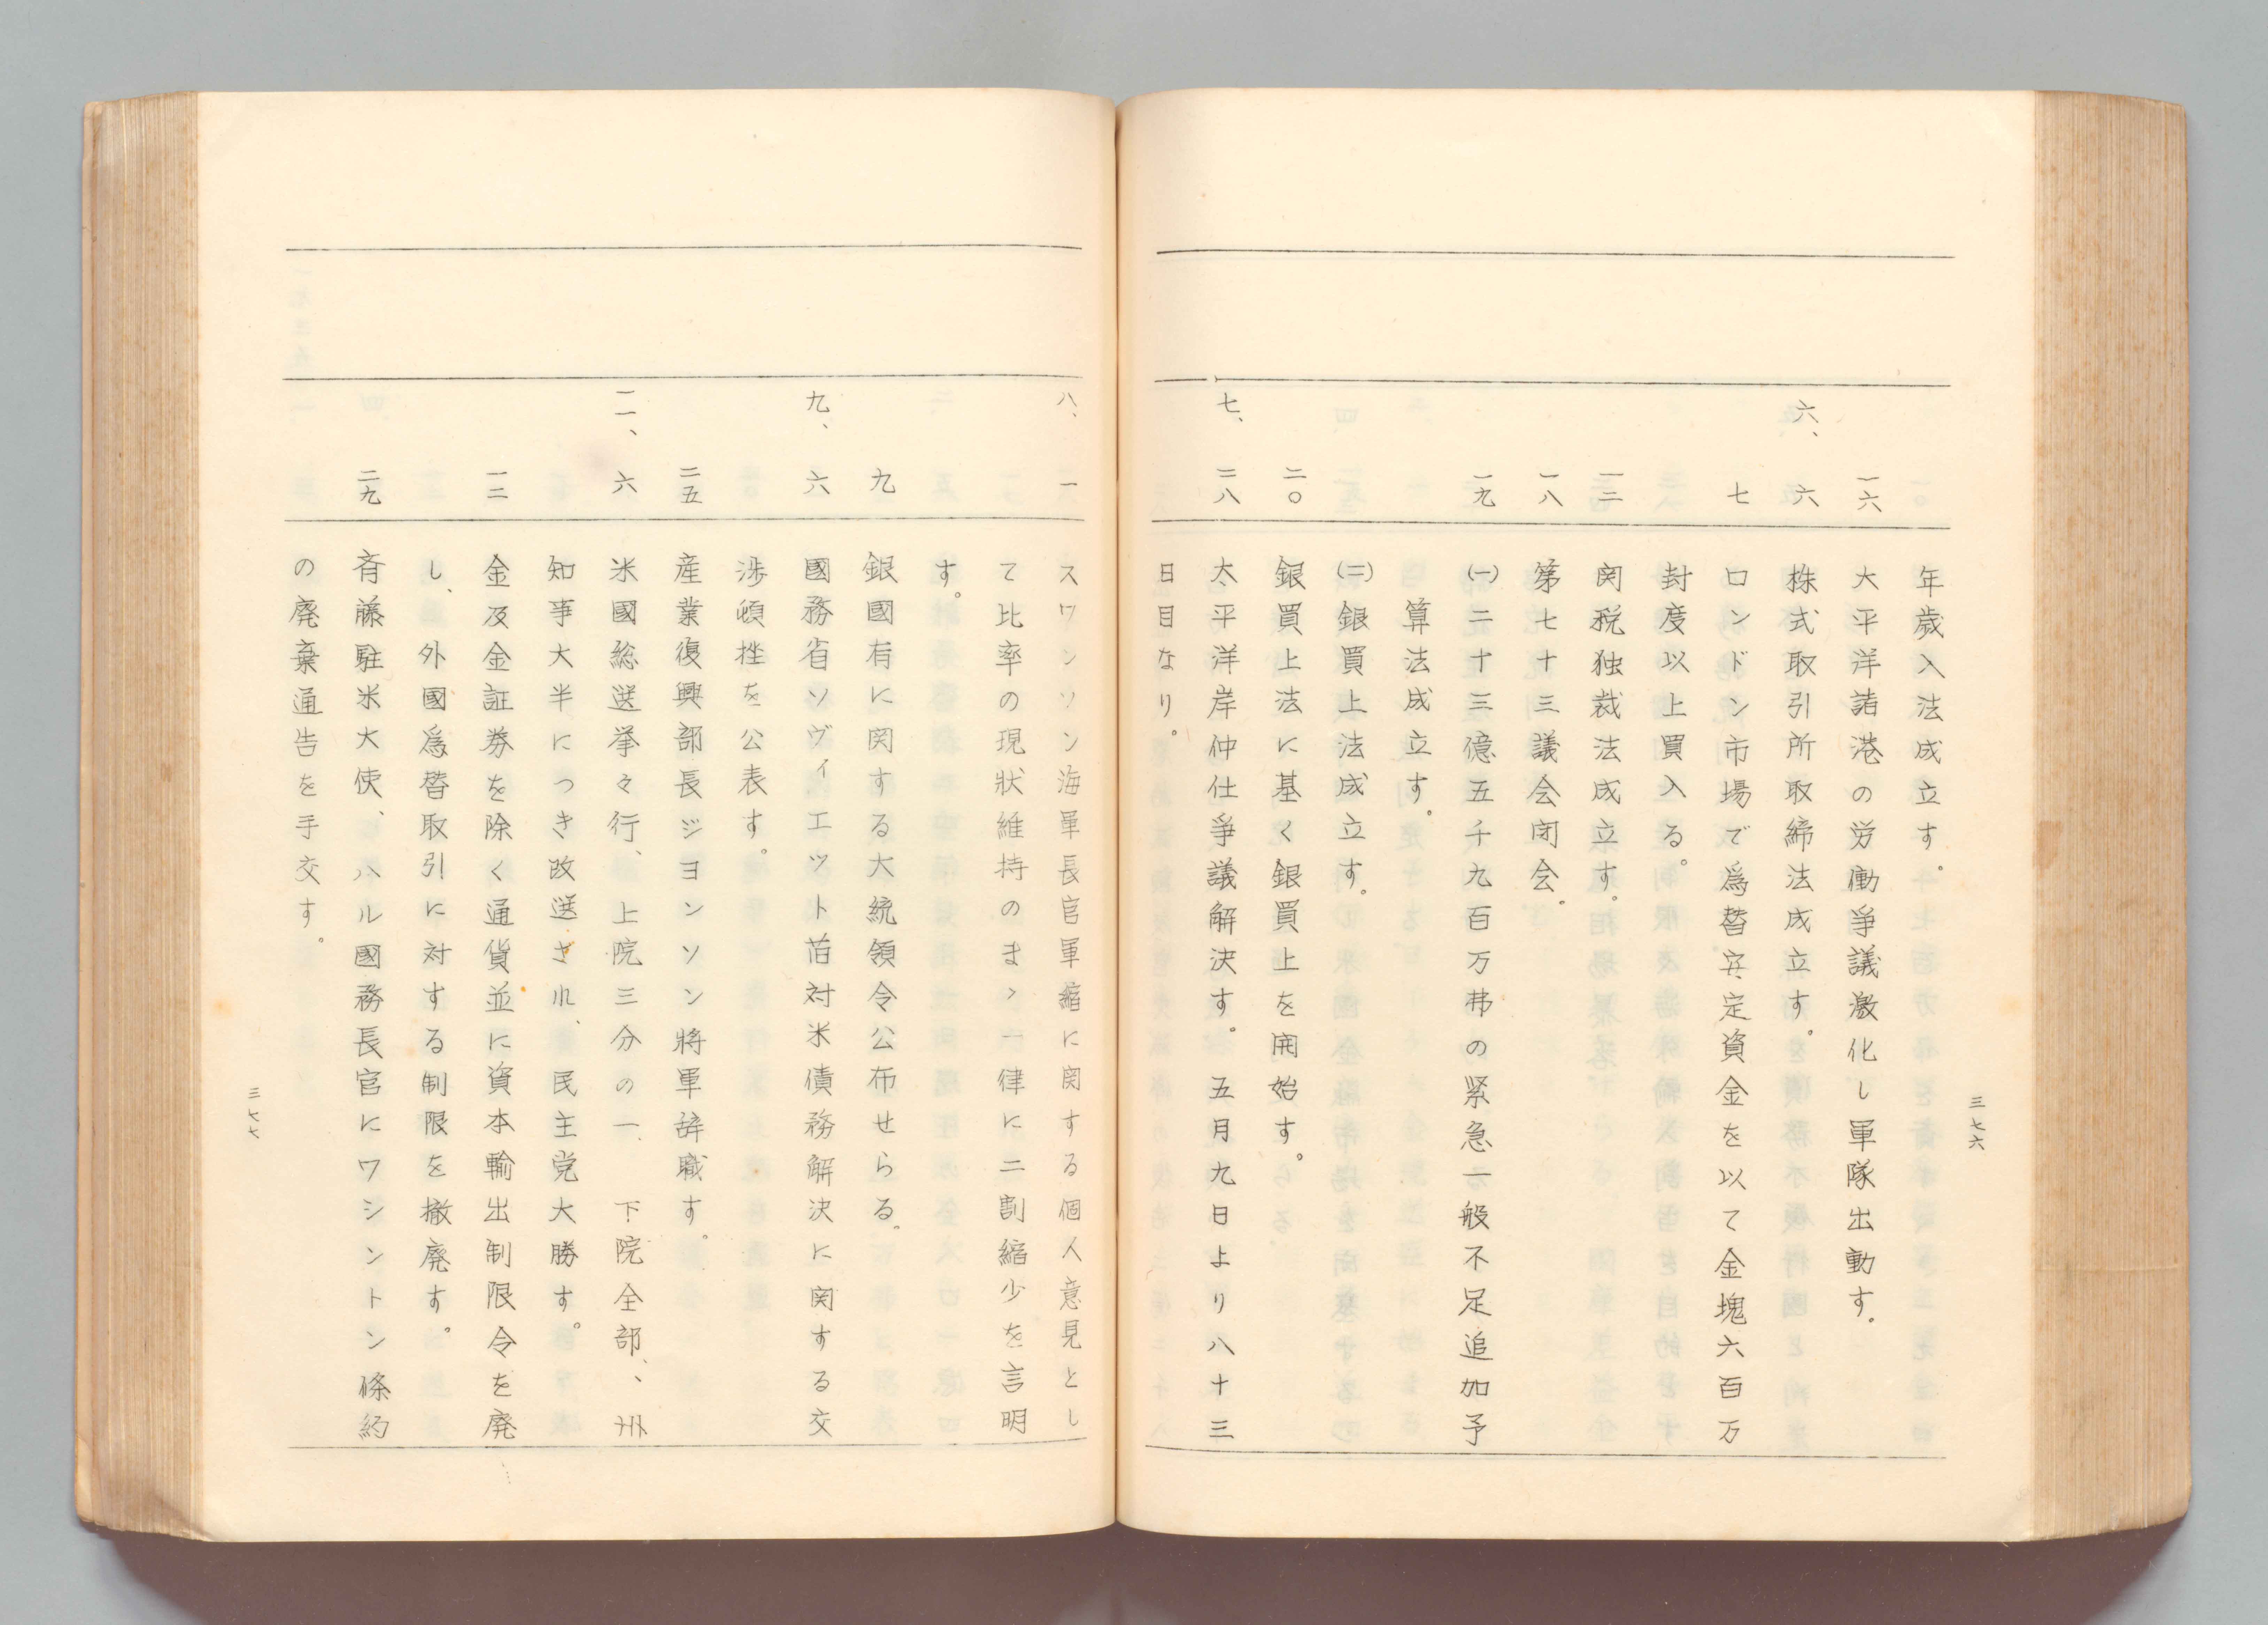 三七六
年歳入法成立す。
一六 大平洋諸港の労働爭議激化し軍隊出動す。
六、 六 株式取引所取締法成立す。
七 ロンドン市場で爲替安定資金を以て金塊六百万
封度以上買入る。
一二 関税独裁法成立す。
一八 第七十三議会閉会。
一九 (一)二十三億五千九百万弗の緊急一般不足追加予
算法成立す。
(二)銀買上法成立す。
二〇 銀買上法に基く銀買上を開始す。
七、 二八 太平洋岸仲仕爭議解決す。五月九日より八十三
日目なり。
八、 一 スワンソン海軍長官軍縮に関する個人意見とし
て比率の現狀維持のまゝ一律に二割縮少を言明
す。
九 銀國有に関する大統領令公布せらる。
九、 六 國務省ソヴィエット 対米債務解決に関する交
渉頓挫を公表す。
二五 産業復興部長ジョンソン將軍辞職す。
一一、 六 米國総選挙々行、上院三分の一、下院全部、州
知事大半につき改選され、民主党大勝す。
一二 金及金証券を除く通貨並に資本輸出制限令を廃
し、外國爲替取引に対する制限を撤廃す。
二九 斉藤駐米大使、ハル國務長官にワシントン條約
の廃棄通告を手交す。
三七七